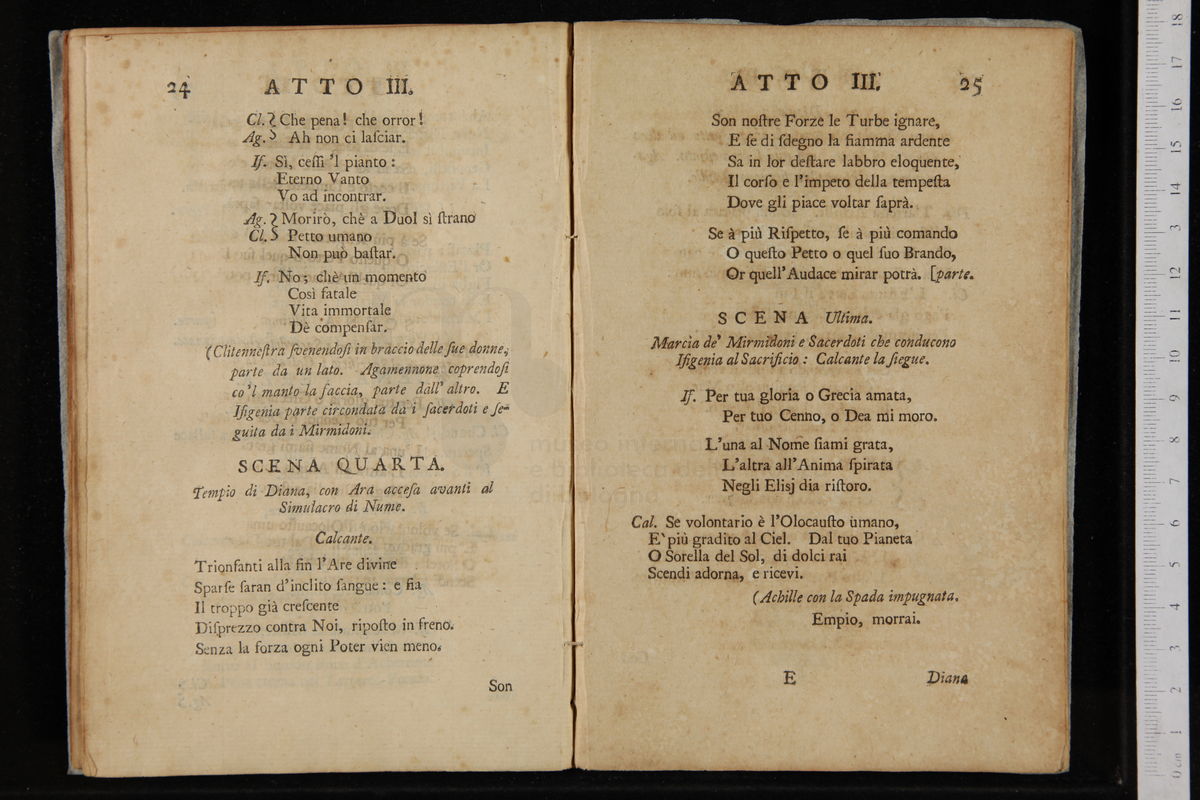 24 ATTO III.
Cl. } Che pena! che orror!
Ag. } Ah non ci laſciar.
If. Sì, ceſſi 'l pianto :
Eterno Vanto
Vo ad incontrar.
Ag. } Morirò, chè a Duol sì ſtrano
Cl. } Petto umano
Non può baſtar.
If. No; chè un momento
Così fatale
Vita immortale
Dè compenſar.
(Clitenneſtra ſvenendoſi in braccio delle ſue donne,
parte da un lato. Agamennone coprendoſi
co'l manto la faccia, parte dall' altro. E
Ifigenia parte circondata da i ſacerdoti e ſe-
guita da i Mirmidoni.
SCENA QUARTA.
Tempio di Diana, con Ara acceſa avanti al
Simulacro di Nume.
Calcante.
Trionfanti alla fin l'Are divine
Sparſe ſaran d'inclito ſangue : e fia
Il troppo già creſcente
Diſprezzo contra Noi, ripoſto in freno.
Senza la forza ogni Poter vien meno.
Son
ATTO III. 25
Son noſtre Forze le Turbe ignare,
E ſe di ſdegno la fiamma ardente
Sa in lor deſtare labbro eloquente,
Il corſo e l'impeto della tempeſta
Dove gli piace voltar ſaprà.
Se à più Riſpetto, ſe à più comando
O queſto Petto o quel ſuo Brando,
Or quell'Audace mirar potrà. [parte.
SCENA Ultima.
Marcia de' Mirmidoni e Sacerdoti che conducono
Ifigenia al Sacrificio : Calcante la ſiegue.
If. Per tua gloria o Grecia amata,
Per tuo Cenno, o Dea mi moro.
L'una al Nome ſiami grata,
L'altra all'Anima ſpirata
Negli Elisj dia riſtoro.
Cal. Se volontario è l'Olocauſto umano,
E' più gradito al Ciel. Dal tuo Pianeta
O Sorella del Sol, di dolci rai
Scendi adorna, e ricevi.
(Achille con la Spada impugnata.
Empio, morrai.
E Diana